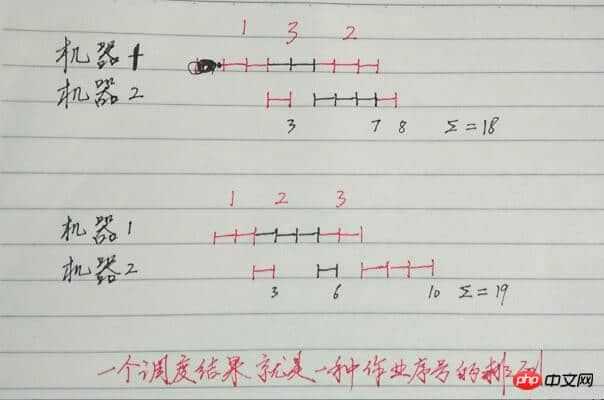 1 3 2
机器1
机器2
3 7 8 Σ=18
1 2 3
机器1
机器2
3 6 10 Σ=19
一个调度结果就是一种作业序号的排列
php 中文网